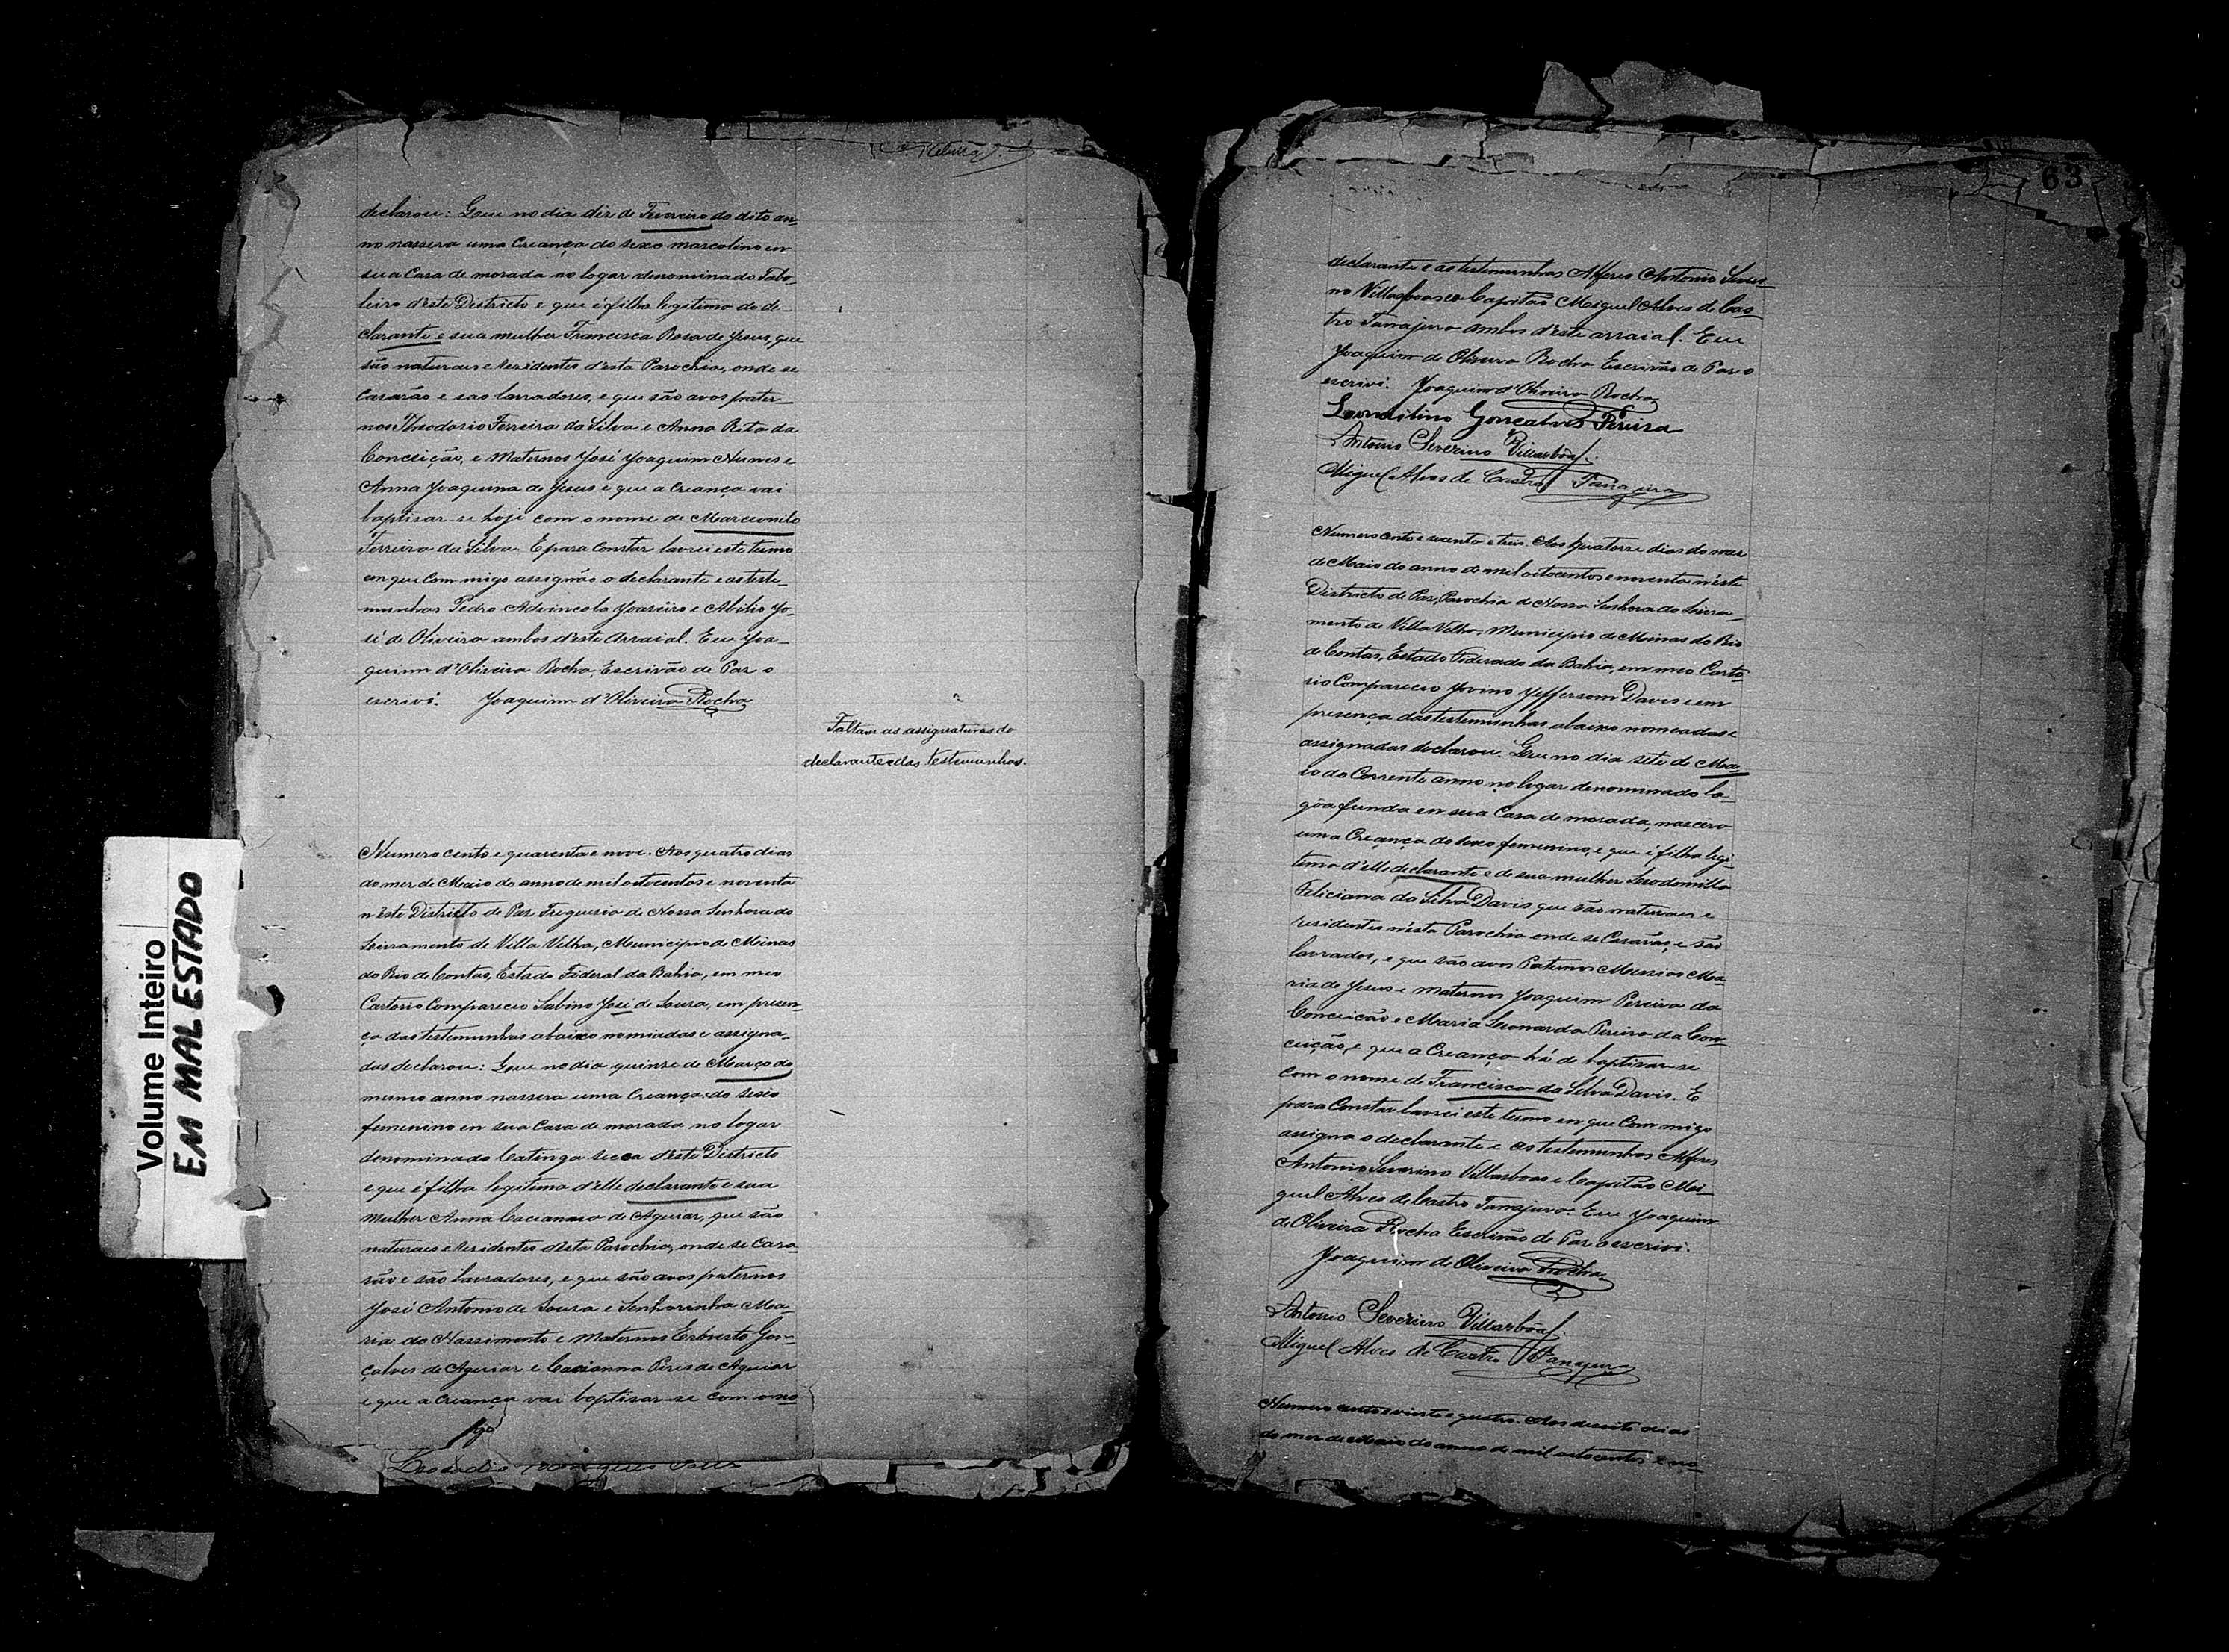 declarou: Que no dia dez de Fevereiro do dito an-
no nassera uma Creança do sexo mascolino em
sua Casa de morada no logar denominado Tabo-
leiro d'este Districto e que é filho legitimo do de-
clarante e sua mulher Francisca Rosa de Jesus, que
são naturaes e residentes d'esta Parochia, onde se
Casarão e sao lavradores, e que são avos pater-
nos Theodosio Ferreira da Silva e Anna Rita da
Conceição, e Maternos José Joaquim Nunes e
Anna Joaquina de Jesus e que a Creança vai
baptisar-se hoje com o nome de Marcionilo
Ferreira da Silva. E para Constar lavrei este termo
em que Com migo assignão o declarante e as teste-
munhas Pedro Advincola Joaseiro e Abilio Jo-
sé de Oliveira ambos d'este Arraial. Eu Joa-
quim d'Oliveira Rocha, Escrivão de Paz o
escrivi. Joaquim d'Oliveira Rocha
Faltam as assignaturas do
declarante e das testemunhas.
Numero cento e quarenta e nove. Aos quatro dias
do mez de Maio do anno de mil oitocentos e noventa
n'este Districto de Paz Freguesia de Nossa Senhora do
Livramento de Villa Velha, Municipio de Minas
do Rio de Contas, Estado Federal da Bahia, em meu
Cartorio Compareceu Sabino José de Sousa, em presen-
ça das testemunhas abaixo nomiadas e assigna-
das declarou: Que no dia quinze de Março do
mesmo anno nassera uma Creança do sexo
femenino em sua Casa de morada no logar
denominado Catinga secca d'este Districto
e que é filha legitima d'elle declarante e sua
Mulher Anna de Aguiar, que são
naturaes e residentes d'esta Parochia, onde se Casa-
rão e são lavradores, e que são avos paternos
José Antonio de Sousa e Senhorinha Ma-
ria do Nassimento e Maternos Gon-
çalves de Aguiar e Pires de Aguiar
e que a Creança vai baptisar-se com o no
63
declarante e as testemunhas Alferes Antonio Severi-
no Villasboas e o Capitão Miguel Alves de Cas-
tro Tanajura ambos d'este arraial. Eu
Joaquim de Oliveira Rocha Escrivão de Paz o
escrivi. Joaquim d'Oliveira Rocha
Gonçalves Pereira
Antonio Severino Villasbôas.
Miguel Alves de Castro Tanajura
Numero cento e e tres. Aos quatorze dias do mez
de Maio do anno de mil oitocentos e noventa n'este
Districto de Paz, Parochia de Nossa Senhora do Livra-
mento de Villa Velha, Municipio de Minas do Rio
de Contas, Estado Federado da Bahia, em meo Carto-
rio Compareceo Jovino Jeffersom Davis e em
presença das testemunhas abaixo nomeadas e
assignadas declarou. Que no dia sete de Ma-
io do Corrente anno no logar denominado la-
gôa funda em sua Casa de morada, nasceo
uma Creança do sexo femenino, e que é filha legi-
tima d'elle declarante e de sua mulher
Feliciana da Silva Davis que são naturaes e
residentes n'esta Parochia onde se Casarão, e são
lavrados, e que são avos Paternos Ma-
ria de Jesus e Maternos Joaquim Pereira da
Conceição e Maria Leonarda Pereira da Con-
ceição, e que a Creança há de baptisar-se
Com o nome de Francisca da Silva Davis. E
para Constar lavrei este termo em que Com migo
assigna o declarante e as testemunhas Alferes
Antonio Severino Villasboas e Capitão Mi-
guel Alves de Castro Tanajura. Eu Joaquim
de Oliveira Rocha Escrivão de Paz o escrivi.
Joaquim de Oliveira Rocha
Antonio Severino Villasbôas.
Miguel Alves de Castro Tanajura
Numero cento e e quatro. Aos dezoito dias
do mez de Maio do anno de mil oitocentos e no-
Volume Inteiro
EM MAL ESTADO